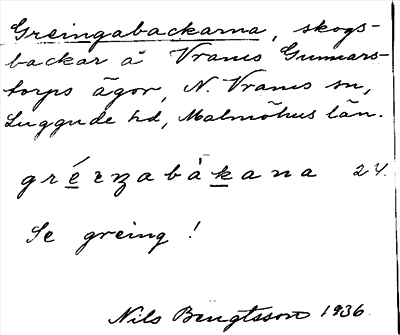 Greingabackarna, skogs-
backar å Vrams Gunnars-
torps ägor, N. Vrams sn,
Luggude hd, Malmöhus län.
gréɪŋabàkana 24.
Se greing!
Nils Bengtsson 1936.